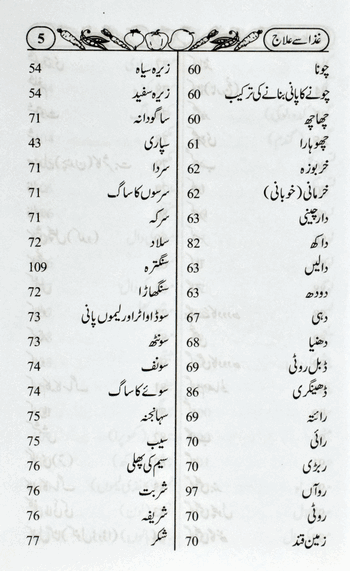 غذا سے علاج
5
چونا 60
چونے کا پانی بنانے کی ترکیب 60
چھاچھ 60
چھوہارا 61
خربوزہ 62
خرمانی (خوبانی) 62
دار چینی 63
داکھ 82
دالیں 63
دودھ 63
دہی 67
دھنیا 68
ڈبل روٹی 69
ڈھینگری 86
رائتہ 69
رائی 70
ربڑی 70
روآں 97
روٹی 70
زمین قند 70
زیرہ سیاہ 54
زیرہ سفید 54
ساگودانہ 71
سپاری 43
سردا 71
سرسوں کا ساگ 71
سرکہ 71
سلاد 72
سنگترہ 109
سنگھاڑا 72
سوڈا واٹر اور لیموں پانی 73
سونٹھ 73
سونف 74
سوئے کا ساگ 74
سہانجنہ 75
سیب 75
سیم کی پھلی 76
شربت 76
شریفہ 76
شکر 77